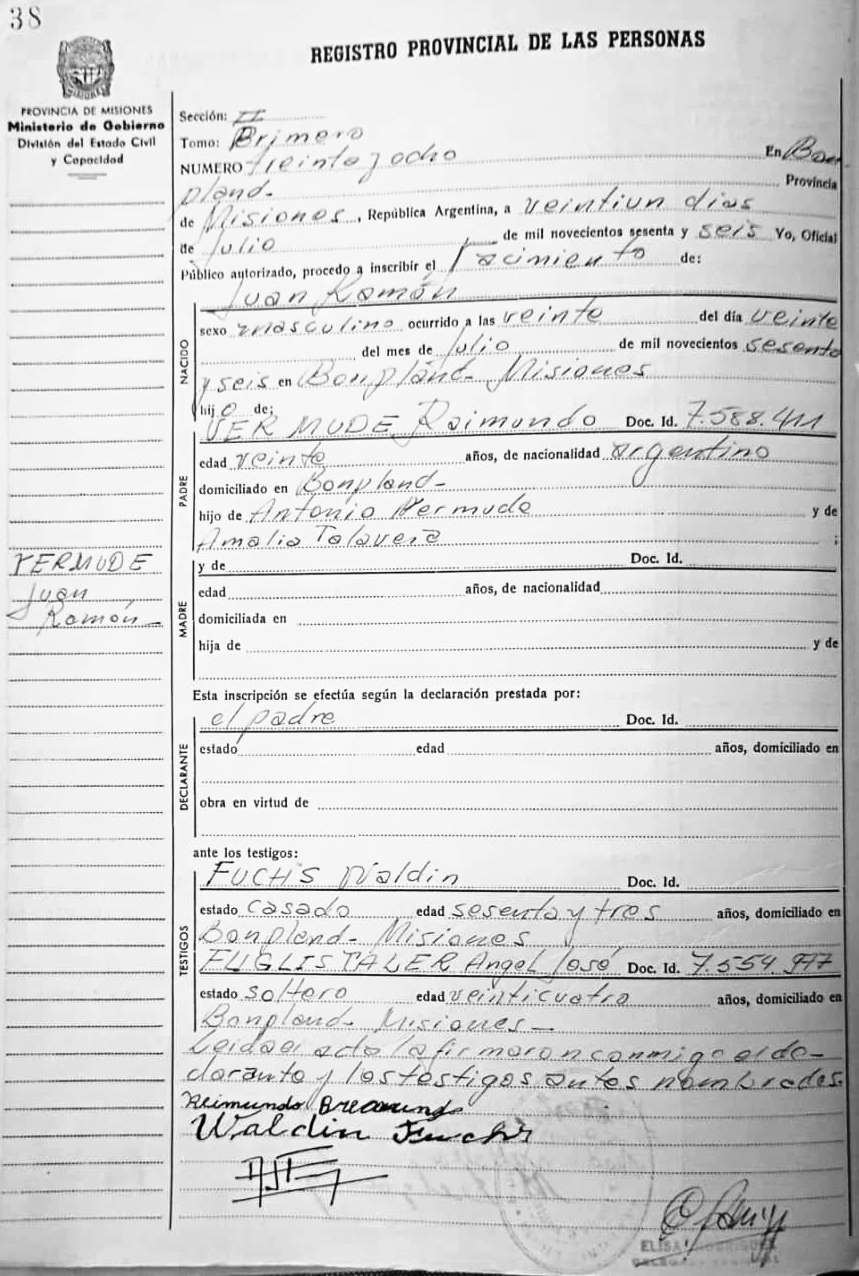 38
REGISTRO PROVINCIAL DE LAS PERSONAS
PROVINCIA DE MISIONES
Ministerio de Gobierno
División del Estado Civil
y Capacidad
VERMUDE
Juan
Ramón
Sección: II
Tomo: Primero
NUMERO treinta y ocho En Bon
pland. Provincia
de Misiones, República Argentina, a veintiun dias
de Julio de mil novecientos sesenta y seis Yo, Oficial
Público autorizado, procedo a inscribir el nacimiento de:
Juan Ramón
NACIDO
sexo masculino ocurrido a las veinte del día veinte
del mes de Julio de mil novecientos sesenta
y seis en Bonpland - Misiones
hijo de;
VERMUDE Raimundo Doc. Id. 7.588.411
PADRE
edad veinte años, de nacionalidad argentino
domiciliado en Bonpland-
hijo de Antonio Vermude y de
Amalia Talavera ;
MADRE
y de Doc. Id.
edad años, de nacionalidad
domiciliada en
hija de y de
Esta inscripción se efectúa según la declaración prestada por:
DECLARANTE
el padre Doc. Id.
estado edad años, domiciliado en
obra en virtud de
ante los testigos:
TESTIGOS
FUCHS Waldin Doc. Id.
estado casado edad sesenta y tres años, domiciliado en
Bonpland - Misiones
FUGLISTALER Angel José Doc. Id. 7.554.977
estado soltero edad veinticuatro años, domiciliado en
Bonpland - Misiones -
Leida el acta la firmaron conmigo el de-
clarante y los testigos antes nombrados.
Reimundo
Waldin Fuchs
ELISA RODRIGUEZ